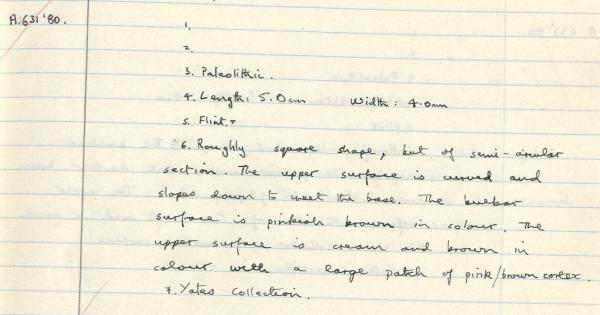 A.631'80.
1.
2.
3. Paleolithic.
4. Length: 5.0cm Width: 4.0cm
5. Flint.
6. Roughly square shape, but of semi-circular
section. The upper surface is curved and
slopes down to meet the base. The bulbar
surface is pinkish brown in colour. The
upper surface is cream and brown in
colour with a large patch of pink/brown cortex.
7. Yates Collection.